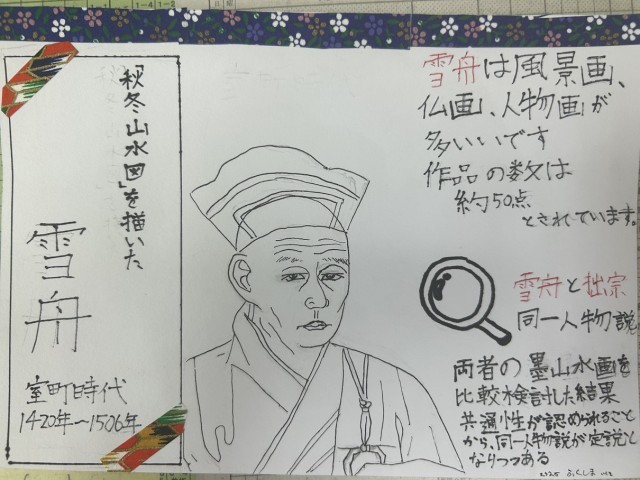 「秋冬山水図」を描いた
雪舟
室町時代
1420年〜1506年
雪舟は風景画、
仏画、人物画が
多いいです
作品の数は
約50点
とされています。
雪舟と拙宗
同一人物説
両者の墨山水画を
比較検討した結果
共通性が認められること
から、同一人物説が定説と
なりつつある
ふくしま